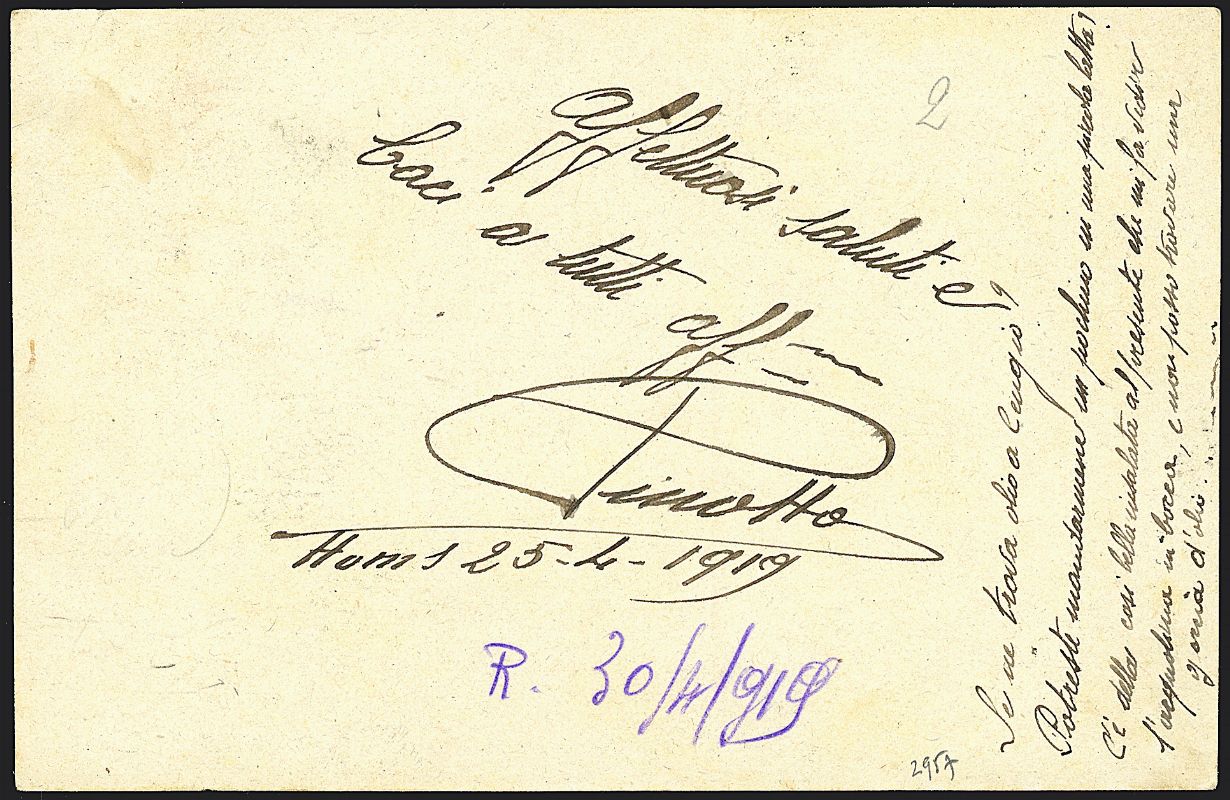 2
Affettuosi saluti e
baci a tutti
aff
Pinotto
Homs 25-4-1919
R. 30/4/919
2957
Se ne trova olio a Cengio?
Potreste mandarmene un pochino in una piccola latta;
C'è della così bella insalata al presente che mi fa venire
l'acquolina in bocca, e non posso trovare una
goccia d'olio.